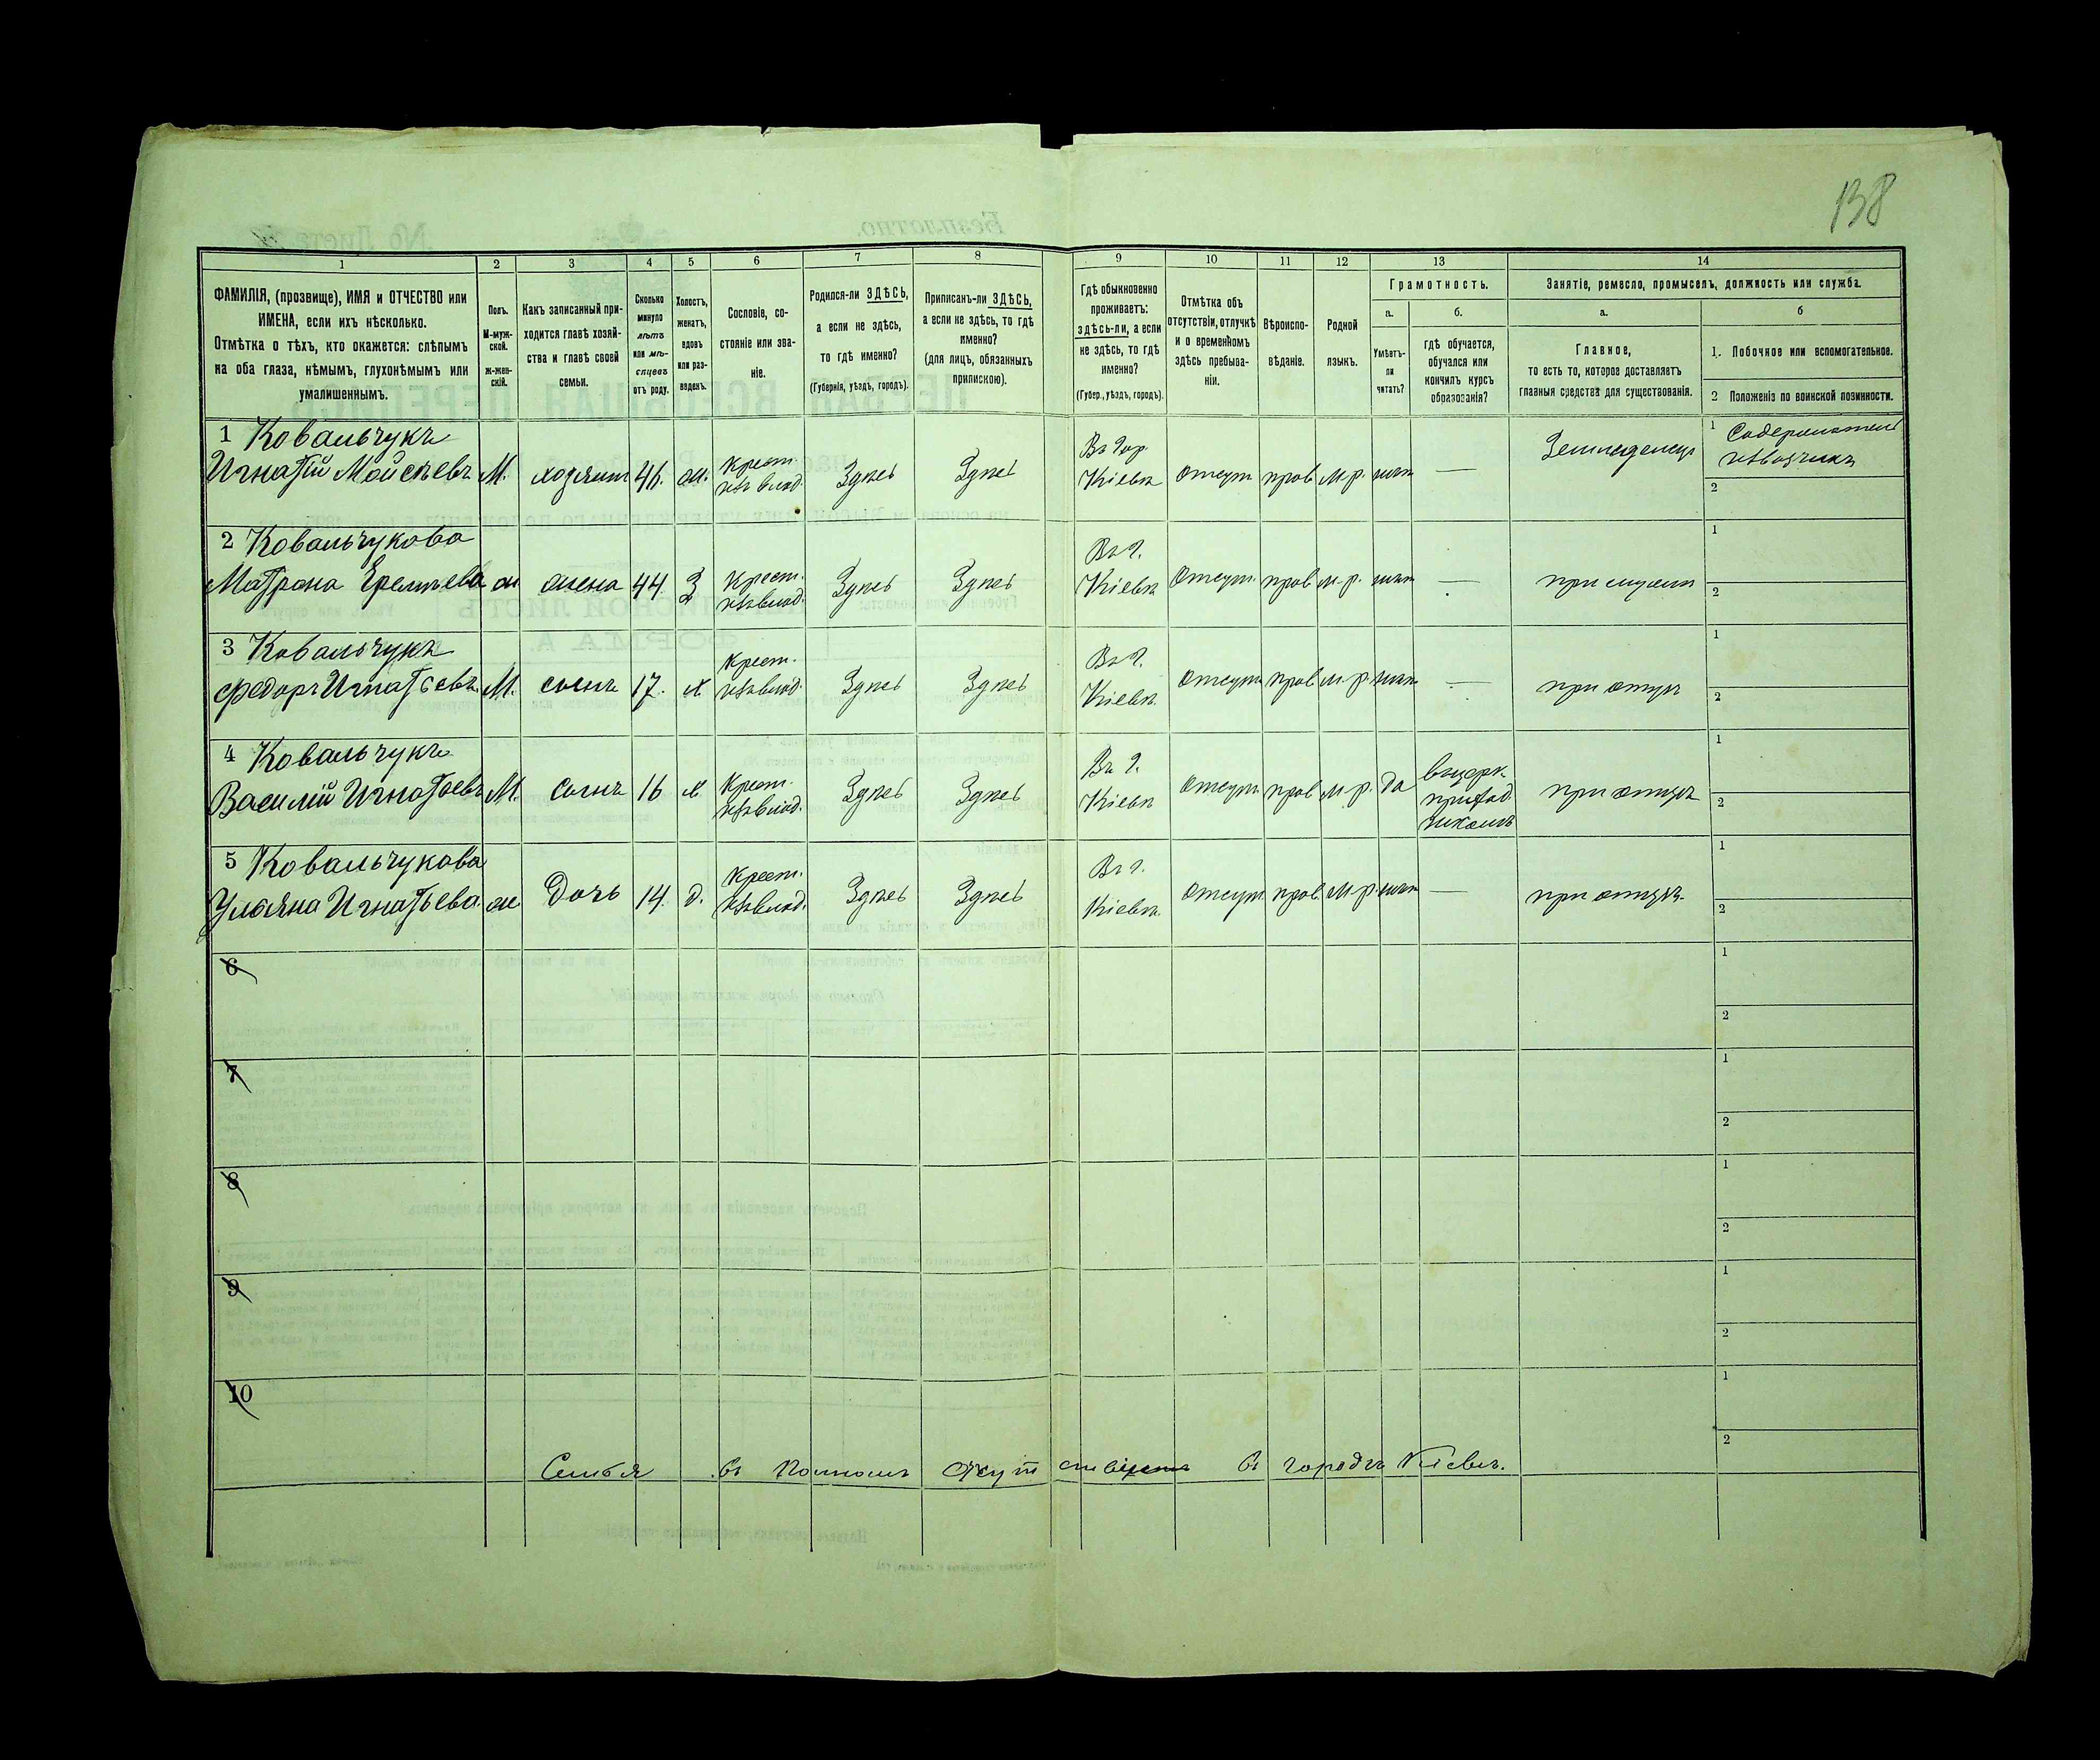 138
1
2
3
4
5
6
7
8
9
10
11
12
13
14
ФАМИЛІЯ, (прозвище), ИМЯ и ОТЧЕСТВО или
ИМЕНА, если ихъ нѣсколько.
Отмѣтка о тѣхъ, кто окажется: слѣпымъ
на оба глаза, нѣмымъ, глухонѣмымъ или
умалишеннымъ.
Полъ.
М-муж-
ской.
ж-жен-
скій.
Какъ записанный при-
ходится главѣ хозяй-
ства и главѣ своей
семьи.
Сколько
минуло
лѣтъ
или мѣ-
сяцевъ
отъ роду.
Холостъ,
женатъ,
вдовъ
или раз-
веденъ.
Сословіе, со-
стояніе или зва-
ніе.
Родился-ли ЗДѢСЬ,
а если не здѣсь,
то гдѣ именно?
(Губернія, уѣздъ, городъ).
Приписанъ-ли ЗДѢСЬ,
а если не здѣсь, то гдѣ
именно?
(для лицъ, обязанныхъ
припискою).
Гдѣ обыкновенно
проживаетъ:
здѣсь-ли, а если
не здѣсь, то гдѣ
именно?
(Губер., уѣздъ, городъ).
Отмѣтка объ
отсутствіи, отлучкѣ
и о временномъ
здѣсь пребыва-
ніи.
Вѣроиспо-
вѣданіе.
Родной
языкъ.
Грамотность.
а.
Умѣетъ-
ли
читать?
б.
гдѣ обучается,
обучался или
кончилъ курсъ
образованія?
Занятіе, ремесло, промыселъ, должность или служба.
а.
Главное,
то есть то, которое доставляетъ
главныя средства для существованія.
б
1. Побочное или вспомогательное.
2 Положеніе по воинской повинности.
1 Ковальчукъ
Игнатій Мойсѣевъ М. хозяинъ 46. ж. Крест. изъ влад. Здѣсь Здѣсь Въ гор. Кіевѣ отсут. прав. м-р. нѣтъ — Земледѣлецъ
1 Содержатель
извозчикъ
2
2 Ковальчукова
Матрона Еремѣева ж жена 44. З Крест. изъ влад. Здѣсь Здѣсь Въ г. Кіевѣ отсут. прав. м-р. нѣтъ — при мужѣ
1
2
3 Ковальчукъ
Федоръ Игнатьевъ. М. сынъ 17. х Крест. изъ влад. Здѣсь Здѣсь Въ г. Кіевѣ. отсут. прав. м-р. нѣтъ — при отцѣ
1
2
4 Ковальчукъ
Василій Игнатьевъ М. сынъ 16 х. Крест. изъ влад. Здѣсь Здѣсь Въ г. Кіевѣ отсут. прав. м-р. да въ церк. приход. школѣ при отцѣ
1
2
5 Ковальчукова
Ульяна Игнатьева. ж Дочь 14. д. Крест. изъ влад. Здѣсь Здѣсь Въ г. Кіевѣ. отсут. прав. м-р. нѣтъ — при отцѣ.
1
2
6
1
2
7
1
2
8
1
2
9
1
2
10
1
2
Семья въ полномъ въ городѣ Кіевѣ.